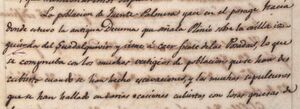 La poblacion de Fuente Palmera yace en el parage hacia
donde estuvo la antigua Decuma que señala Plinio sobre la orilla iz-
quierda del Guadalquivir y cinco à caer frente de las Posadas, lo que
se comprueba con los muchos vestigios de poblacion que se han des-
cubierto cuando se han hecho escavaciones, y los muchos sepulcros
que se han hallado en varias ocasiones cubiertos con losas gruesas de